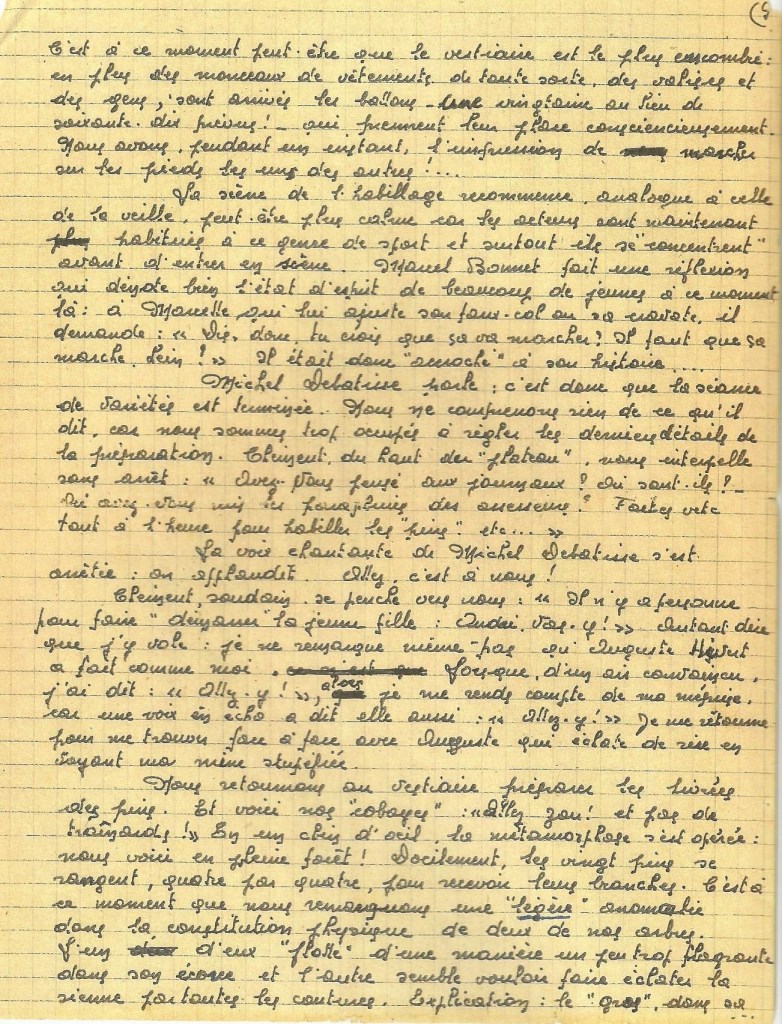 (9
C'est à ce moment peut-être que le vestiaire est le plus encombré :
en plus des monceaux de vêtements de toute sorte, des valises et
des gens, sont arrivés les ballons - une vingtaine au lieu de
soixante-dix prévus ! - qui prennent leur place consciencieusement.
Nous avons, pendant un instant, l'impression de marcher
sur les pieds les uns des autres !....
La scène de l'habillage recommence, analogue à celle
de la veille, peut-être plus calme car les acteurs sont maintenant
plus habitués à ce genre de sport et surtout ils se "concentrent"
avant d'entrer en scène. Marcel Bonnet fait une réflexion
qui dénote bien l'état d'esprit de beaucoup de jeunes à ce moment
là : à Marcelle, qui lui ajuste son faux-col ou sa cravate, il
demande : « Dis, donc, tu crois que ça va marcher ? Il faut que ça
marche, hein ! » Il était donc "accroché" à son histoire....
Michel Debatisse parle ; c'est donc que la séance
de variétés est terminée. Nous ne comprenons rien de ce qu'il
dit, car nous sommes trop occupés à régler les derniers détails de
la préparation. Clément, du haut du "plateau", nous interpelle
sans arrêt : « Avez-vous pensé aux journaux ? Où sont-ils ? -
Où avez-vous mis les des ? Faites vite
tout à l'heure pour habiller les "pins" etc... »
La voix chantante de Michel Debatisse s'est
arrêtée : on applaudit. Allez, c'est à nous !
Clément, soudain, se penche vers nous : « Il n'y a personne
pour faire "démarrer" la jeune fille : André, vas-y ! » Autant dire
que j'y vole : je ne remarque même-pas qu'Auguste
a fait comme moi. Lorsque, d'un air convaincu,
j'ai dit : « Allez-y ! », alors je me rends compte de ma méprise,
car une voix en écho a dit elle aussi : « Allez-y ! » Je me retourne
pour me trouver face à face avec Auguste qui éclate de rire en
voyant ma mine stupéfiée.
Nous retournons au vestiaire préparer les livrées
des pins. Et voici nos "cobayes" : « Allez zou ! et pas de
traînards ! » En un clin d'oeil, la métamorphose s'est opérée :
nous voici en pleine forêt ! Docilement, les vingt pins se
rangent, quatre par quatre, pour recevoir leurs branches. C'est à
ce moment que nous remarquons une "légère" anomalie
dans la constitution physique de deux de nos arbres.
L'un d'eux "flotte" d'une manière un peu trop flagrante
dans son écorce et l'autre semble vouloir faire éclater la
sienne par toutes les coutures. Explication : le "gros", dans sa ...